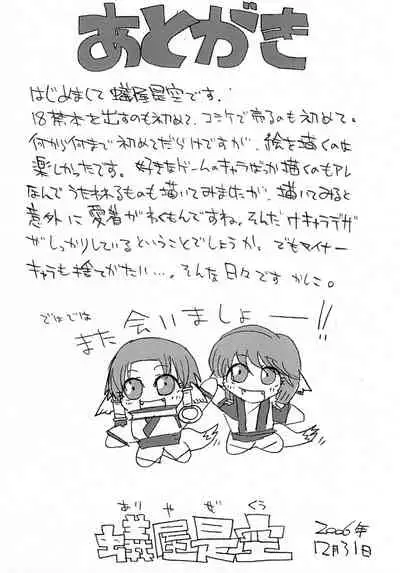 あとがき
はじめまして蟻屋是空です。
18禁本を出すのも初めて、コミケで売るのも初めて。
何から何まで初めてだらけですが、絵を描くのは
楽しかったです。好きなゲームのキャラばっか描くのもアレ
なんでうたわれるものも描いてみましたが、描いてみると
意外に愛着がわくもんですね。そんだけキャラデザ
がしっかりしているということでしょうか。でもマイナー
キャラも捨てがたい…。そんな日々です かしこ。
ではでは
また 会いましょー!!
ありやぜくう
蟻屋是空
2006年
12月31日